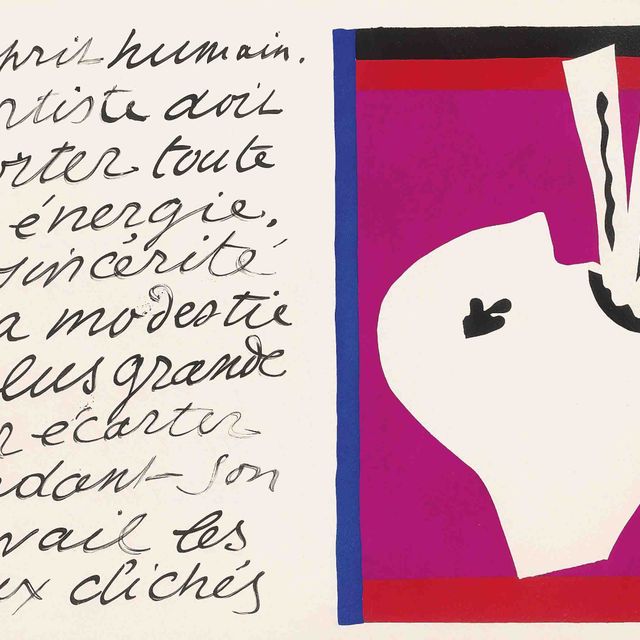 sprit humain.
rtiste doit
orter toute
énergie,
sincérité
a modestie
lus grande
r écarter
ndant-son
vail les
ux clichés